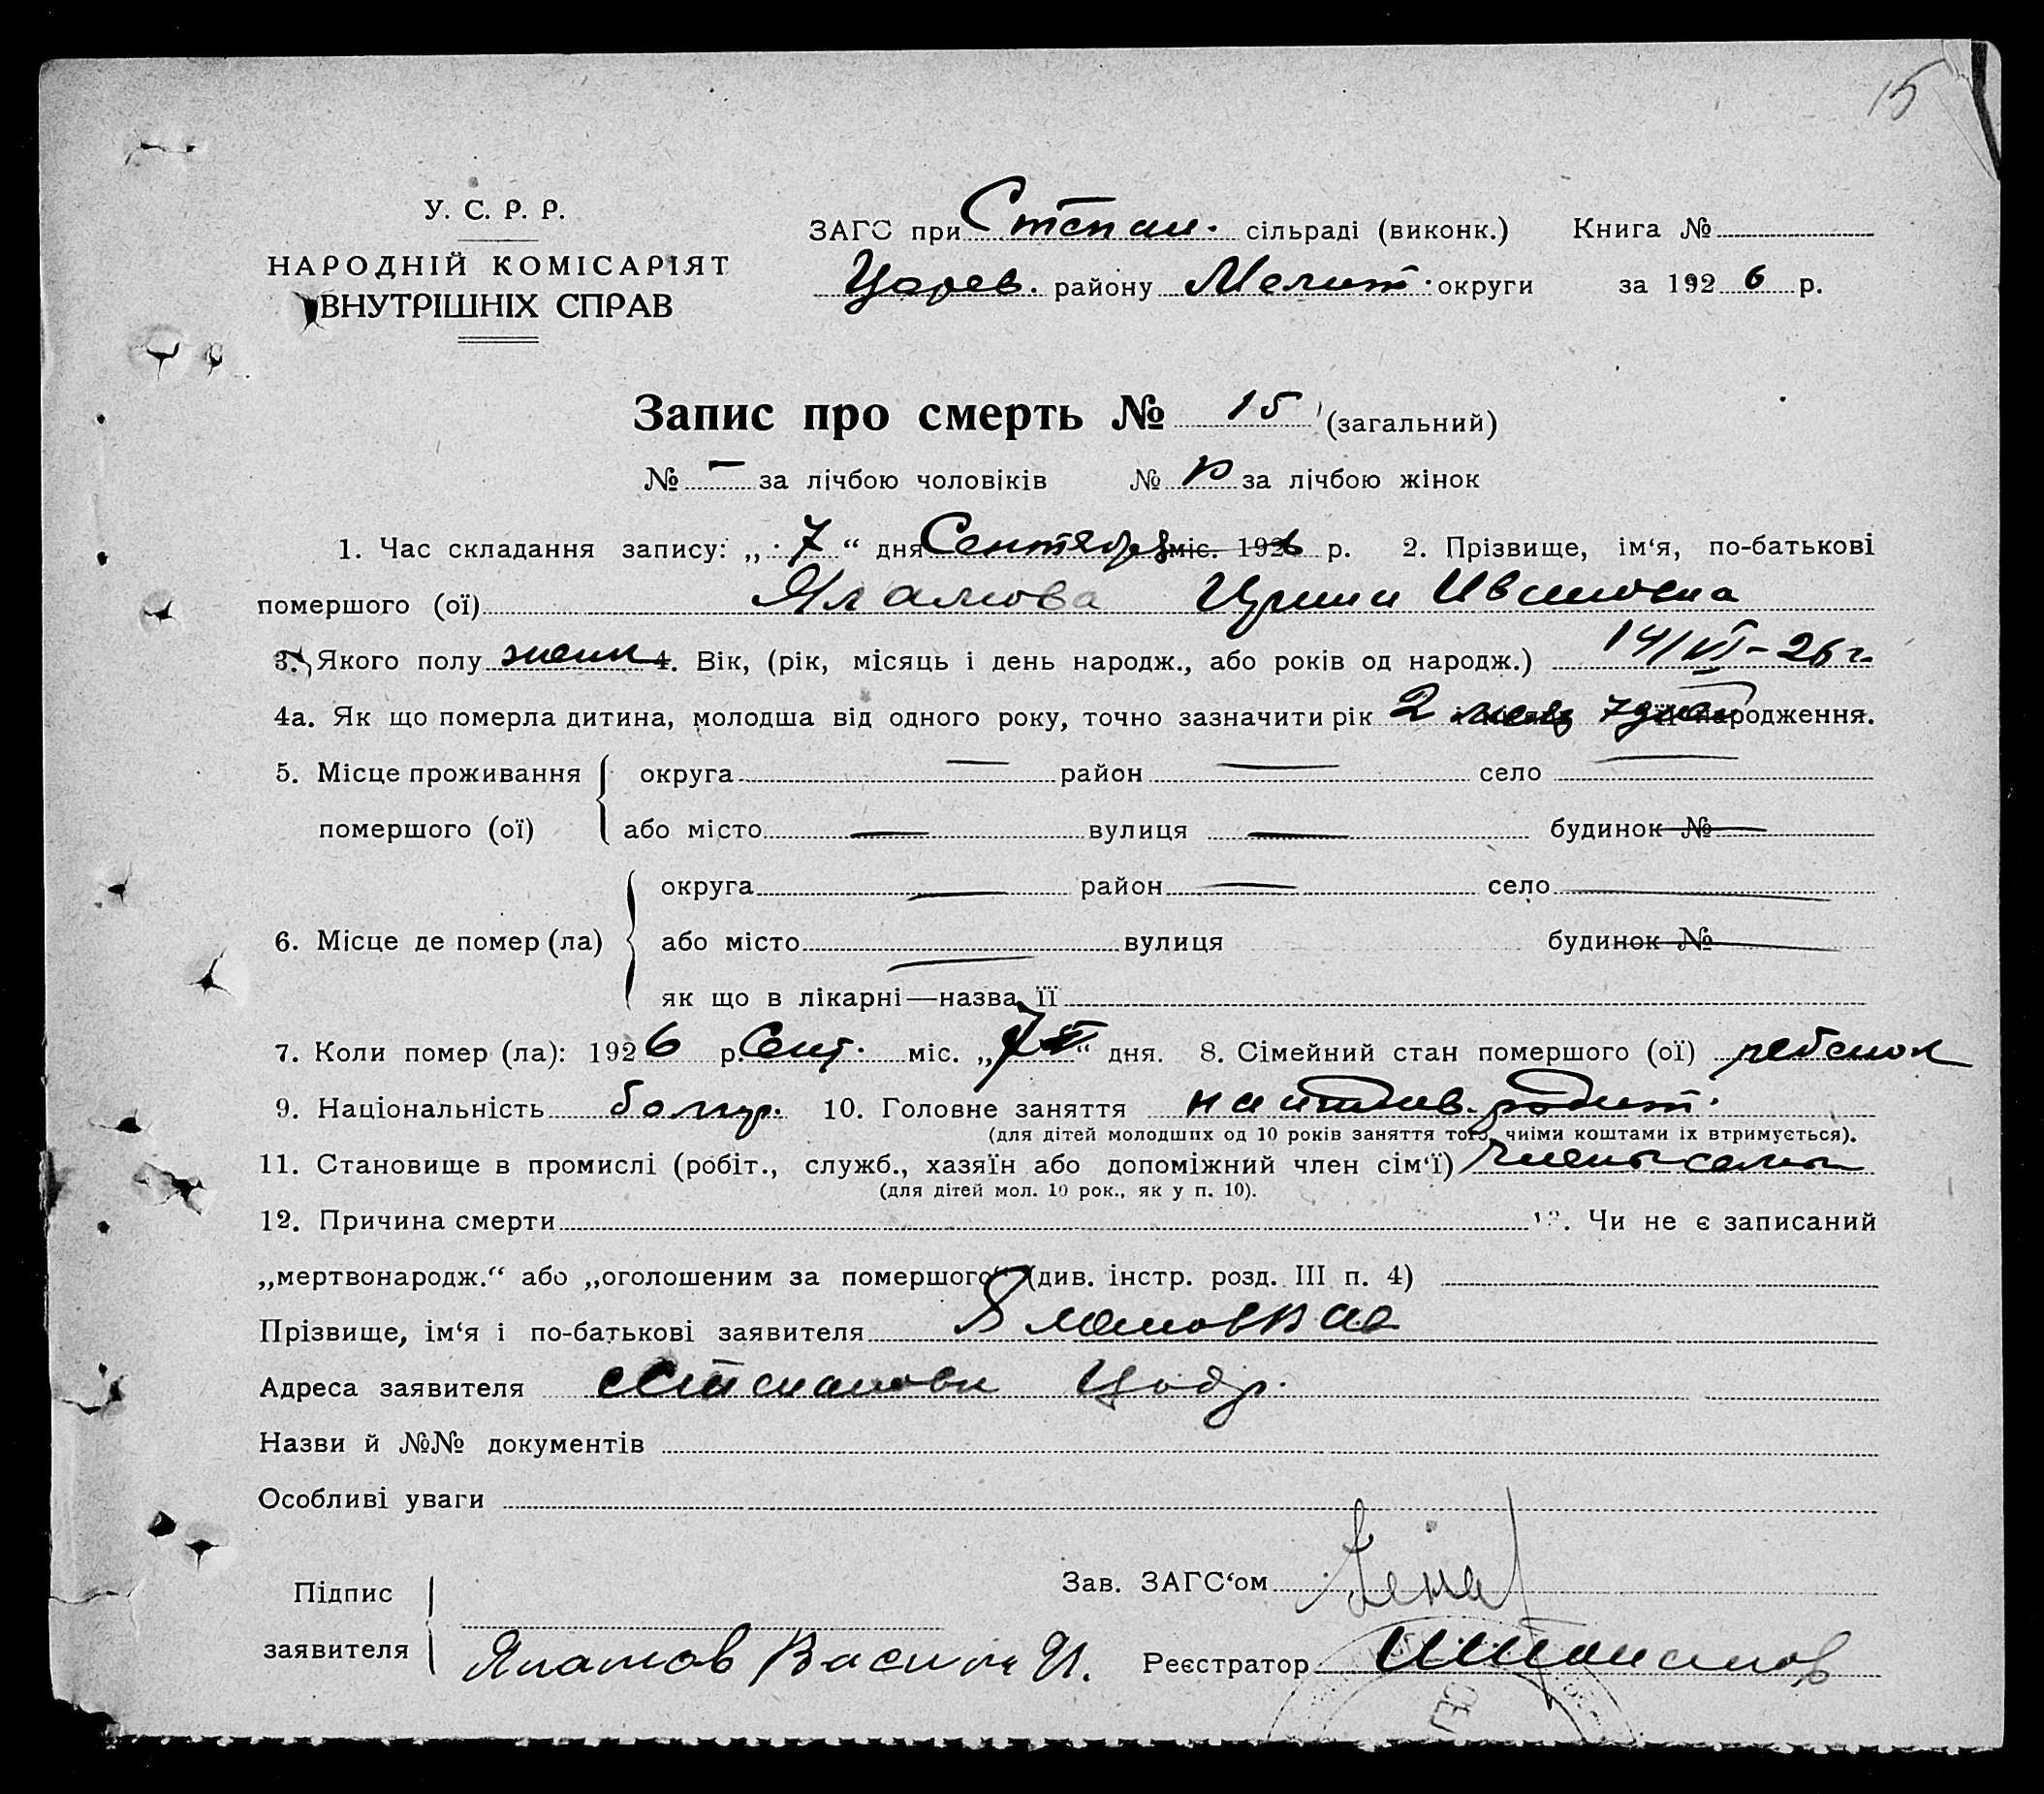 15
У. С. Р. Р.
НАРОДНІЙ КОМІСАРІЯТ
ВНУТРІШНІХ СПРАВ
ЗАГС при Степан. сільраді (виконк.) Книга №
Царев. району Мелит. округи за 1926 р.
Запис про смерть № 15 (загальний)
№ — за лічбою чоловіків № за лічбою жінок
1. Час складання запису: „7“ дня Сентября міс. 1926 р. 2. Прізвище, ім‘я, по-батькові
помершого (ої) Яламова Ивановна
3. Якого полу женск 4. Вік, (рік, місяць і день народж., або років од народж.) 14/VI-26 г.
4а. Як що померла дитина, молодша від одного року, точно зазначити рік 2 7 дней народження.
5. Місце проживання округа — район — село —
помершого (ої) або місто — вулиця — будинок № —
округа — район — село —
6. Місце де помер (ла) або місто — вулиця будинок № —
як що в лікарні—назва її
7. Коли помер (ла): 1926 р. Сент. міс. „7“ дня. 8. Сімейний стан помершого (ої) ребенок
9. Національність болгар. 10. Головне заняття на иждив. родит.
(для дітей молодших од 10 років заняття того, чиїми коштами їх втримується).
11. Становище в промислі (робіт., служб., хазяїн або допоміжний член сім‘ї) члены семьи
(для дітей мол. 10 рок., як у п. 10).
12. Причина смерти 13. Чи не є записаний
„мертвонародж.“ або „оголошеним за помершого“ (див. інстр. розд. III п. 4)
Прізвище, ім‘я і по-батькові заявителя
Адреса заявителя Степановка
Назви й №№ документів
Особливі уваги
Підпис Зав. ЗАГС‘ом
заявителя Яламов Васили И. Реєстратор